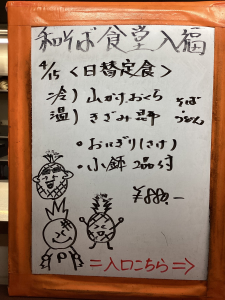 和そば食堂 入福
4/15 <日替定食>
冷) 山かけおくら そば
温) きざみ昆布 うどん
・おにぎり(さけ)
・小鉢 2品付
¥880-
=入口こちら=>